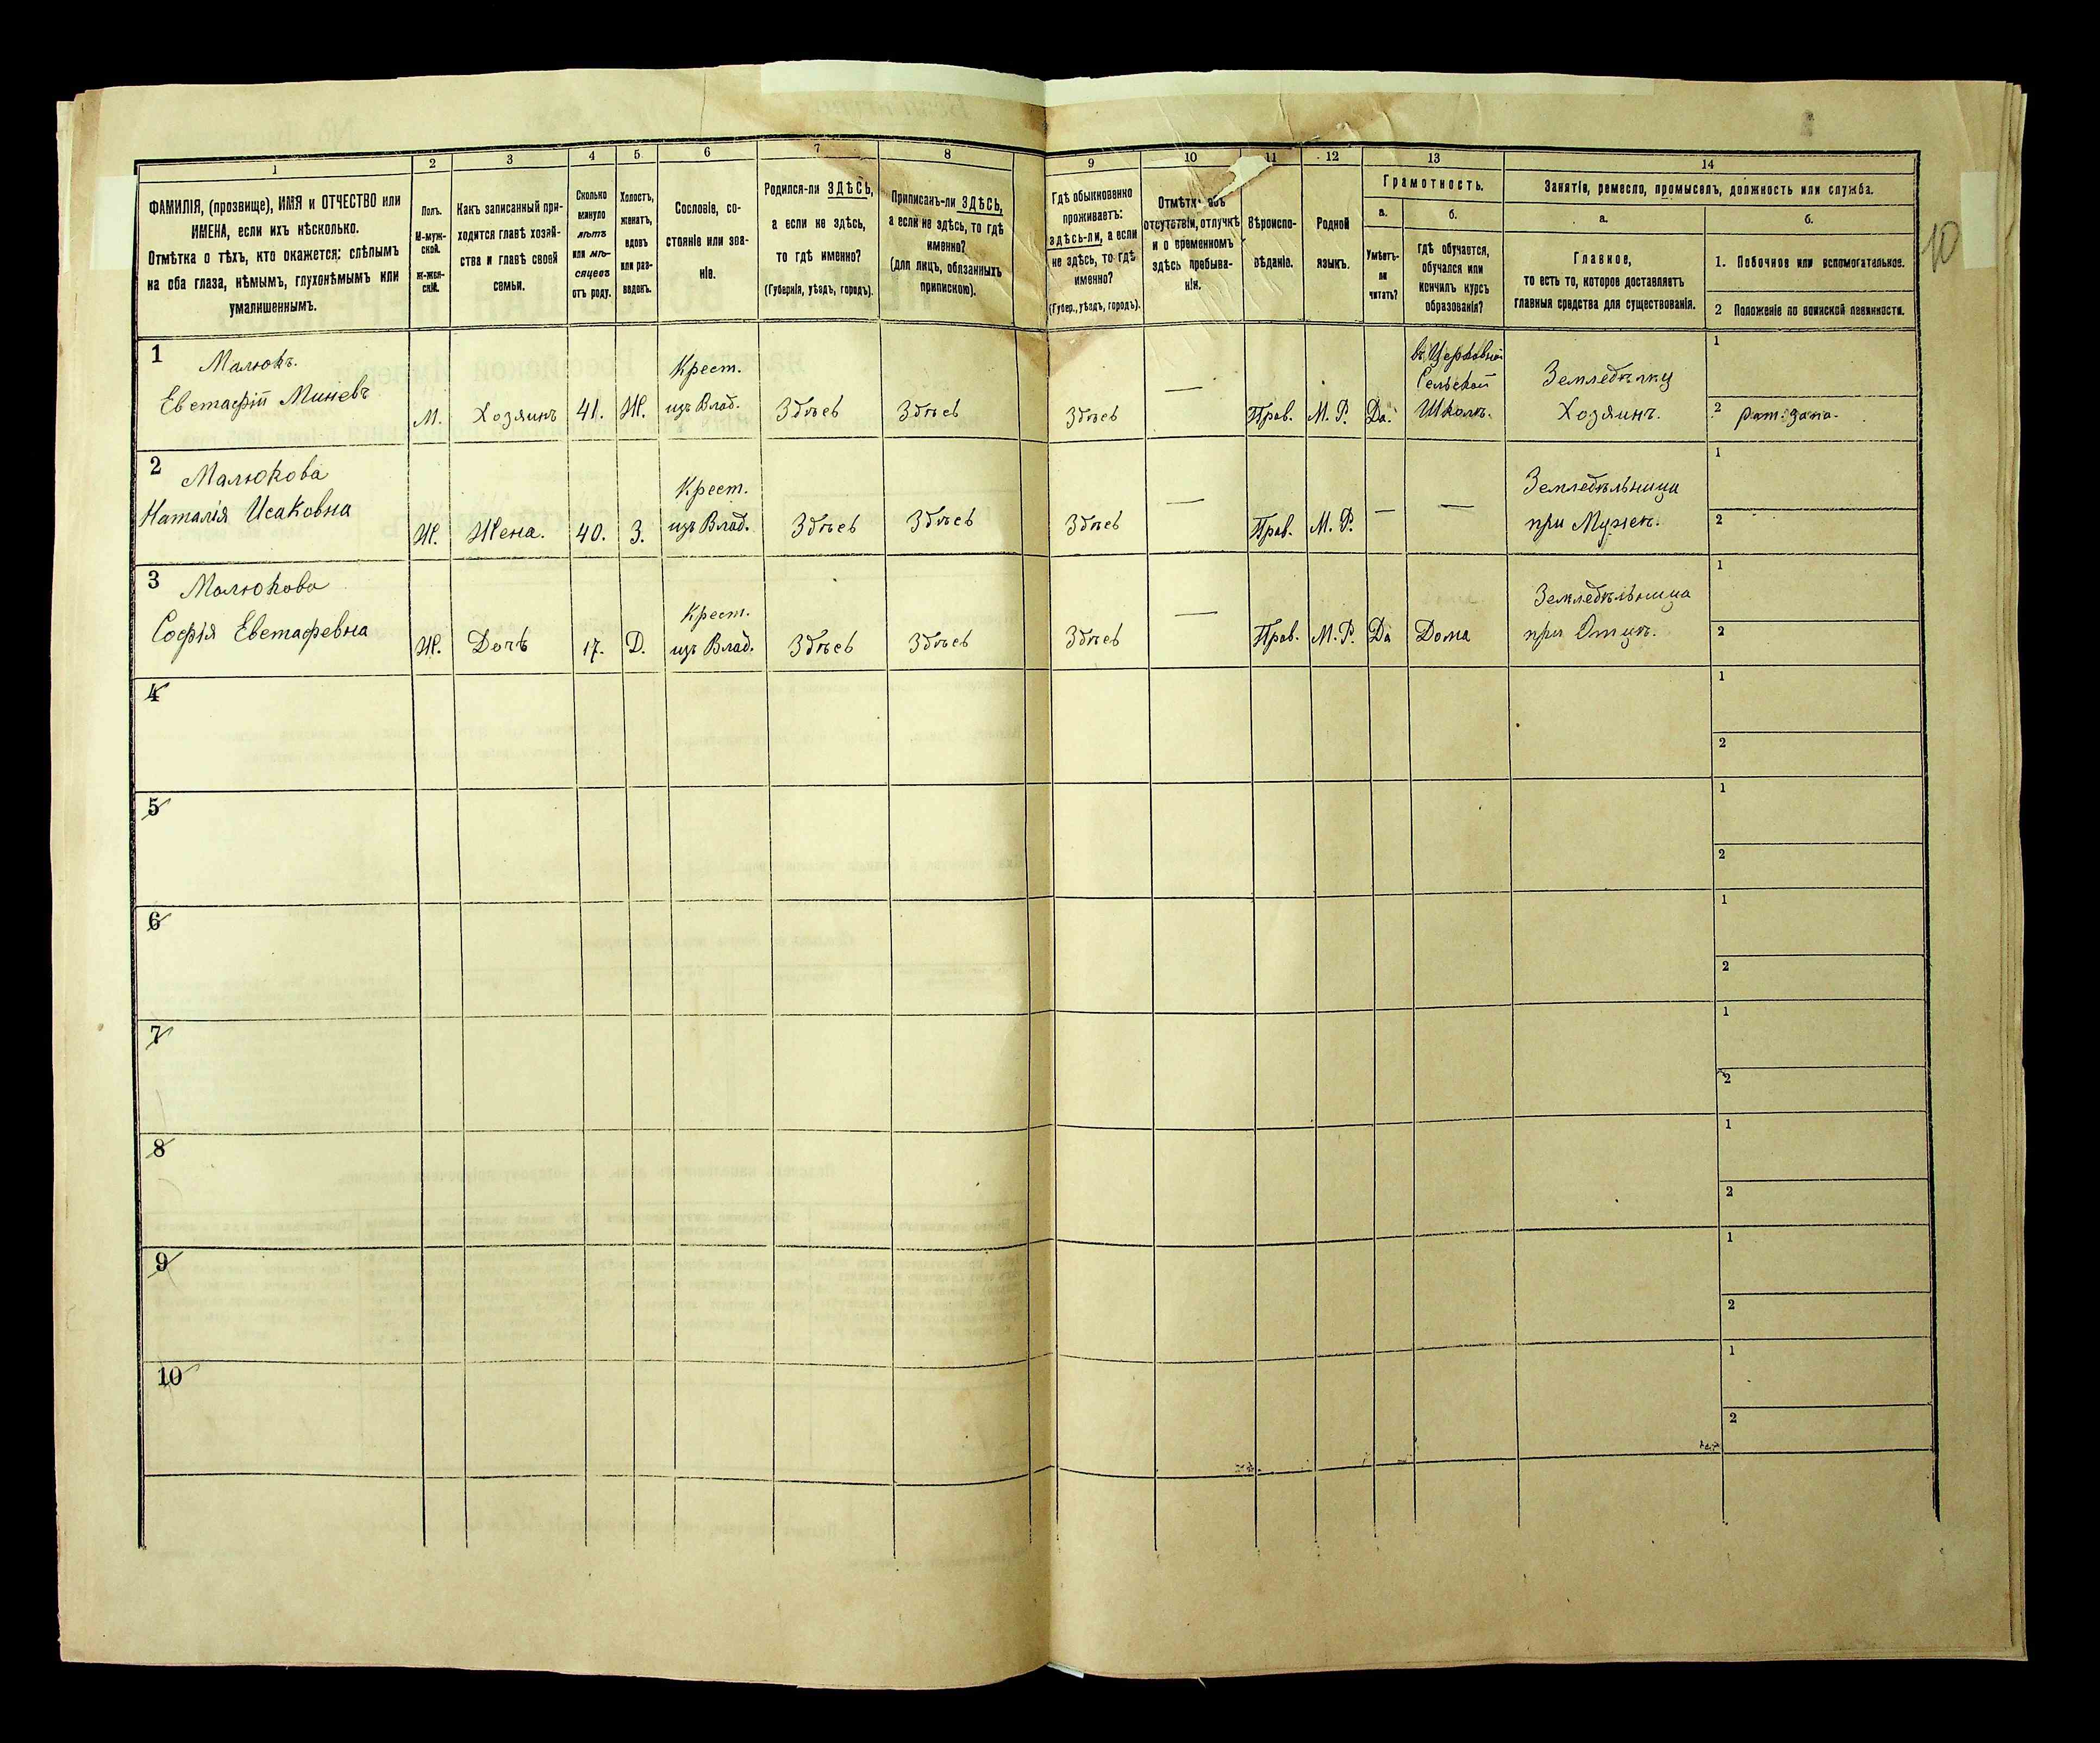 1 2 3 4 5 6 7 8
9 10 11 12 13 14
ФАМИЛІЯ, (прозвище), ИМЯ и ОТЧЕСТВО или
ИМЕНА, если ихъ нѣсколько.
Отмѣтка о тѣхъ, кто окажется: слѣпымъ
на оба глаза, нѣмымъ, глухонѣмымъ или
умалишеннымъ.
Полъ.
М-муж-
ской.
Ж-жен-
скій.
Какъ записанный при-
ходится главѣ хозяй-
ства и главѣ своей
семьи.
Сколько
минуло
лѣтъ
или мѣ-
сяцевъ
отъ роду.
Холостъ,
женатъ,
вдовъ
или раз-
веденъ.
Сословіе, со-
стояніе или зва-
ніе.
Родился-ли ЗДѢСЬ,
а если не здѣсь,
то гдѣ именно?
(Губернія, уѣздъ, городъ).
Приписанъ-ли ЗДѢСЬ,
а если не здѣсь, то гдѣ
именно?
(для лицъ, обязанныхъ
припискою).
Гдѣ обыкновенно
проживаетъ:
здѣсь-ли, а если
не здѣсь, то гдѣ
именно?
(Губер., уѣздъ, городъ).
Отмѣтка объ
отсутствіи, отлучкѣ
и о временномъ
здѣсь пребыва-
ніи.
Вѣроиспо-
вѣданіе.
Родной
языкъ.
Грамотность.
а.
Умѣетъ-
ли
читать?
б.
Гдѣ обучается,
обучался или
кончилъ курсъ
образованія?
Занятіе, ремесло, промыселъ, должность или служба.
а.
Главное,
то есть то, которое доставляетъ
главныя средства для существованія.
б.
1. Побочное или вспомогательное.
2 Положеніе по воинской повинности.
10
1 Малюкъ.
Евстафій Миневъ
М. Хозяинъ 41. Ж.
Крест.
изъ Влад.
Здѣсь Здѣсь Здѣсь — Прав. М. Р. Да.
въ Церковной
Сельской
Школѣ.
Земледѣлец
Хозяинъ.
1
2 рат. запа.
2 Малюкова
Наталія Исаковна
Ж. Жена. 40. З.
Крест.
изъ Влад.
Здѣсь Здѣсь Здѣсь — Прав. М. Р. — —
Земледѣльница
при Мужѣ.
1
2
3 Малюкова
Софія Евстафевна
Ж. Дочь 17. Д.
Крест.
изъ Влад.
Здѣсь Здѣсь Здѣсь — Прав. М. Р. Да Дома
Земледѣльница
при Отцѣ.
1
2
4
1
2
5
1
2
6
1
2
7
1
2
8
1
2
9
1
2
10
1
2